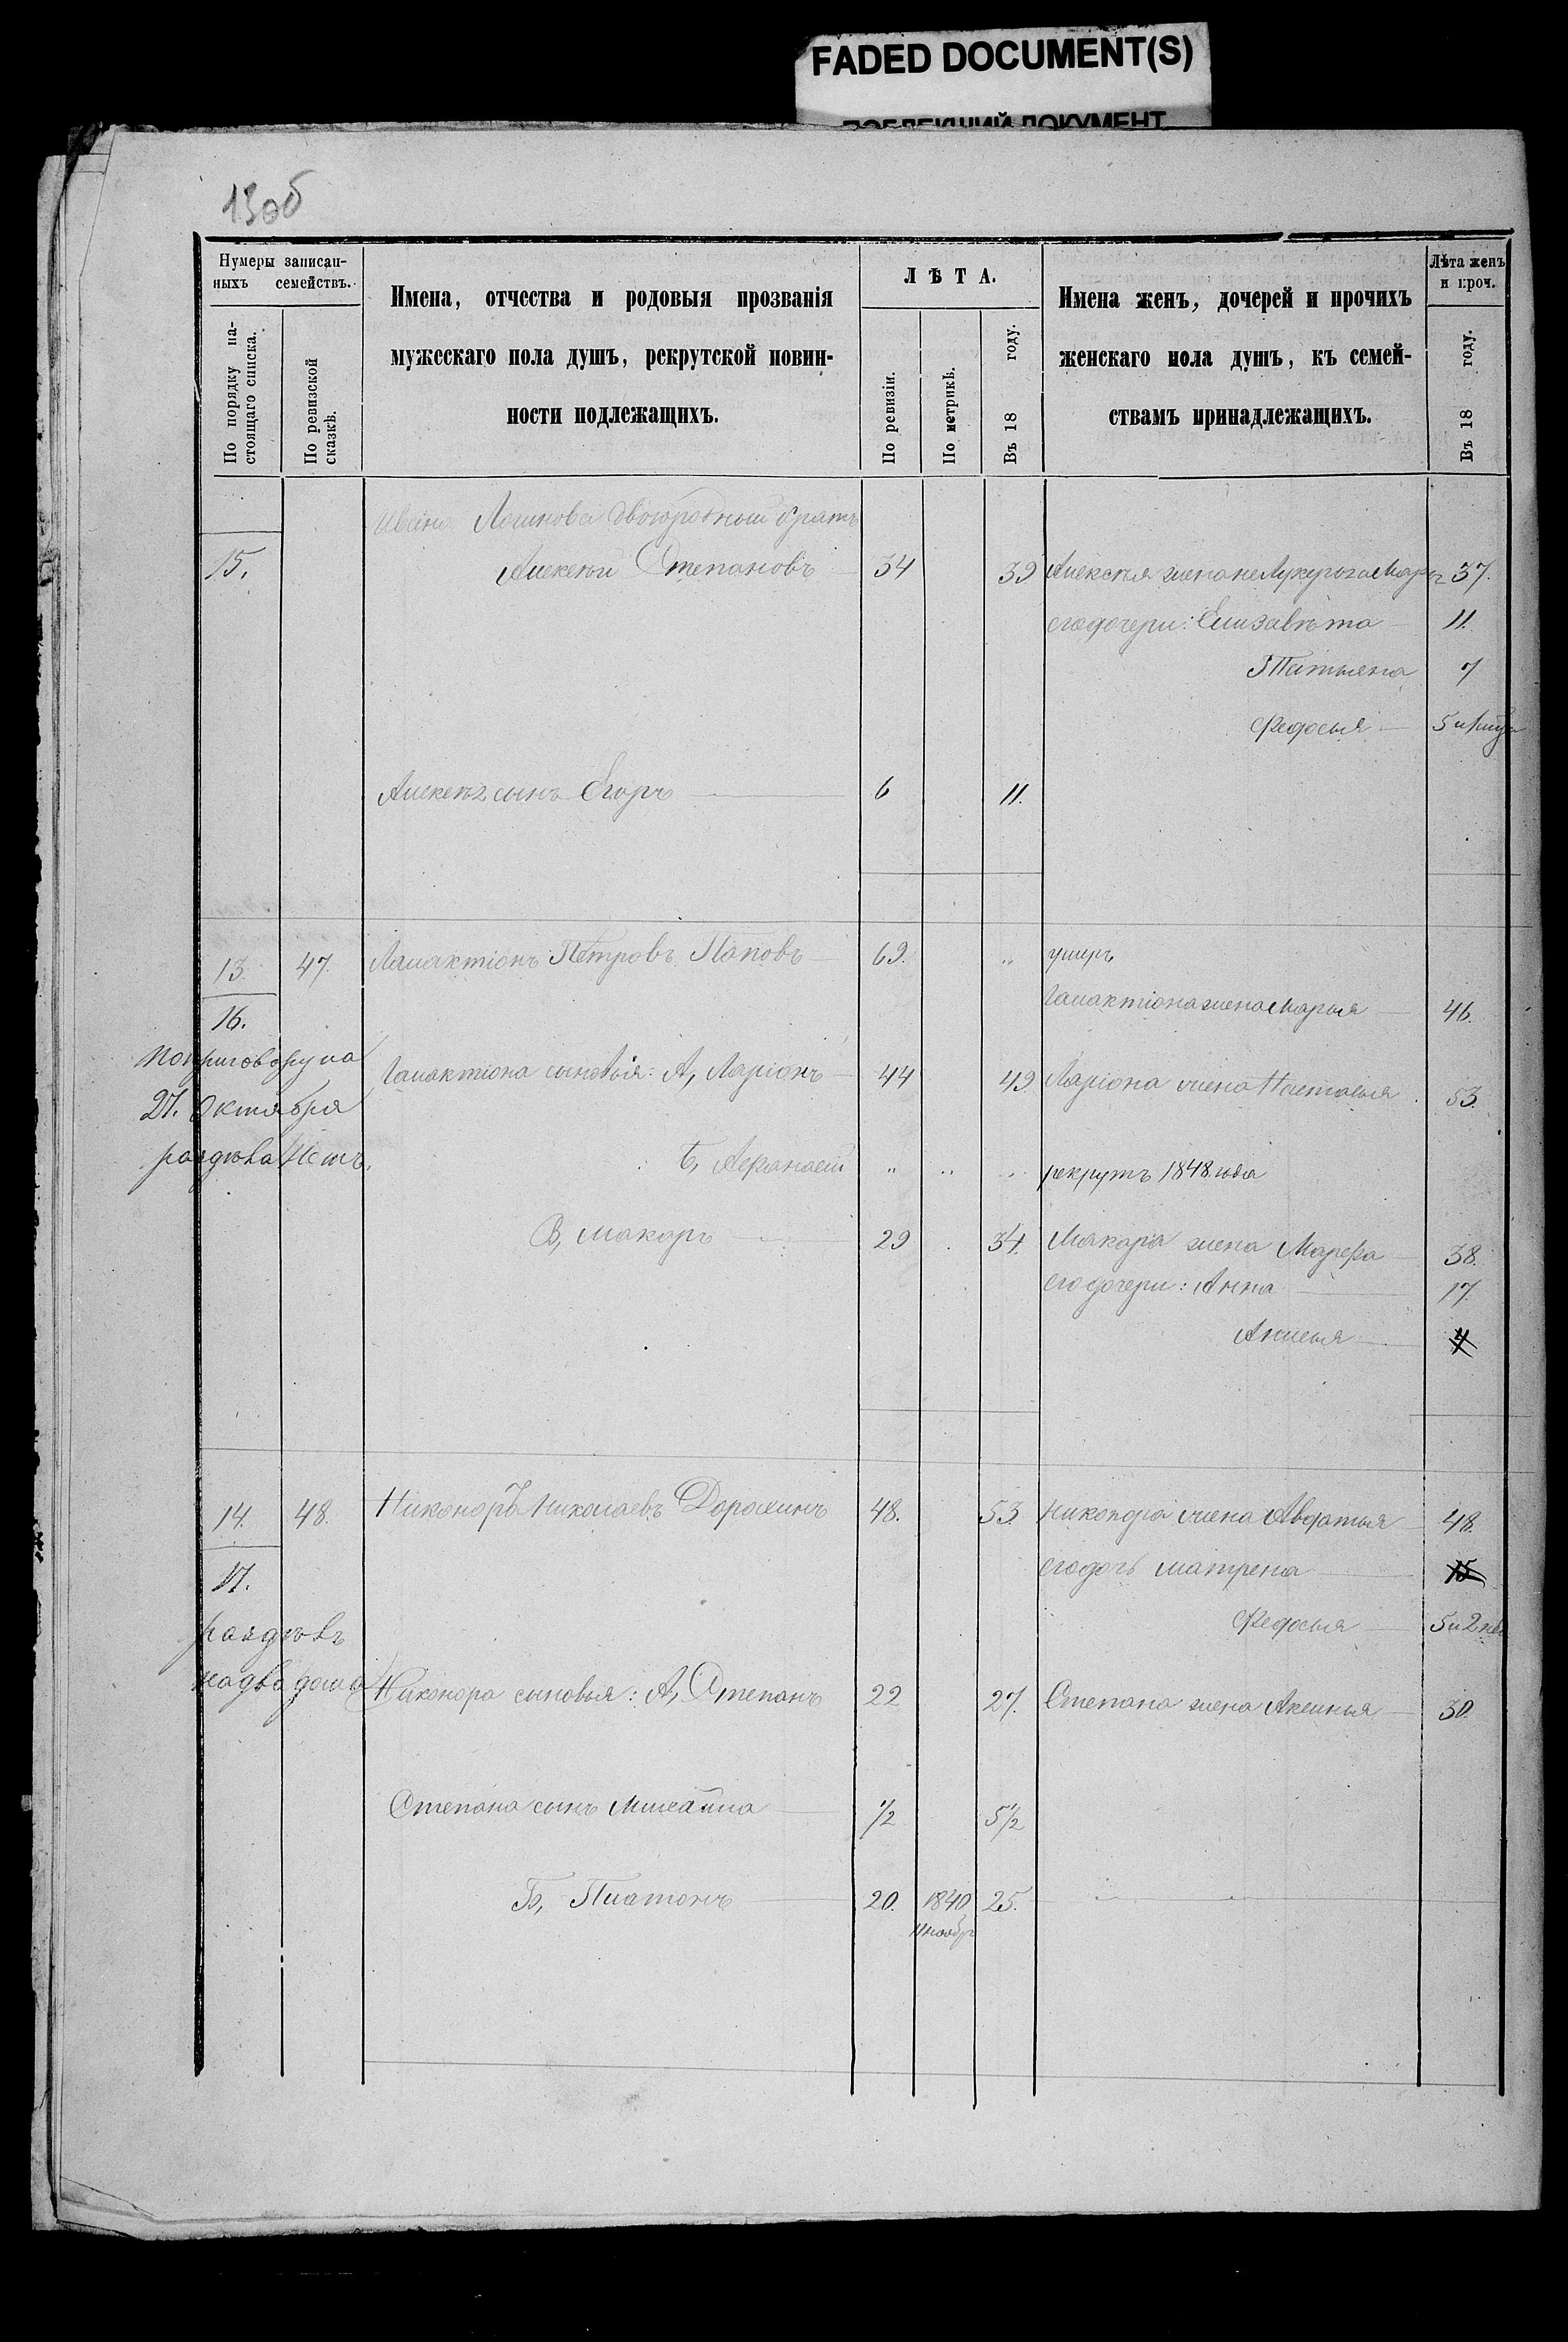 FADED DOCUMENT(S)
ПОБЛЕКШИЙ ДОКУМЕНТ
13об
Нумеры записан-
ныхъ семействъ.
По порядку на-
стоящаго списка.
По ревизской
сказкѣ.
Имена, отчества и родовыя прозванія
мужескаго пола душъ, рекрутской повин-
ности подлежащихъ.
ЛѢТА.
По ревизіи.
По метрикѣ.
Въ 18 году.
Имена женъ, дочерей и прочихъ
женскаго пола душъ, къ семей-
ствамъ принадлежащихъ.
Лѣта женъ
и проч.
Въ 18 году.
Ивана Логинова двоюродный братъ
15. Алексѣй Степановъ 34 39 Алексѣя жена 37.
его дочери: Елизавѣта 11.
Татьяна 7
Федосья 5 и
Алексѣя сынъ Егоръ 6 11.
13. 47. Галактіонъ Петровъ Поповъ 69. „ умеръ
16. Галактіона жена Марья 46.
По приговору на
27. Октября
раздѣла нетъ.
Галактіона сыновья: А, Ларіонъ 44 49 Ларіона жена Настасья 53.
Б, Афанасій „ „ „ рекрутъ 1848 года
В, Макаръ 29 34. Макара жена Марфа 38.
его дочери: Анна 17.
Анисья 4
14. 48. Никоноръ Николаевъ Дорохинъ 48. 53. Никонора жена Авдотья 48.
17. его дочь Матрена 15
Федосья 5 и 2
раздѣлъ
на два дома
Никонора сыновья: А, Степанъ 22 27. Степана жена Аксинья 30.
Степана сынъ Михайла 1/2 5 1/2
Б, Платонъ 20. 1840 25.
ноябр